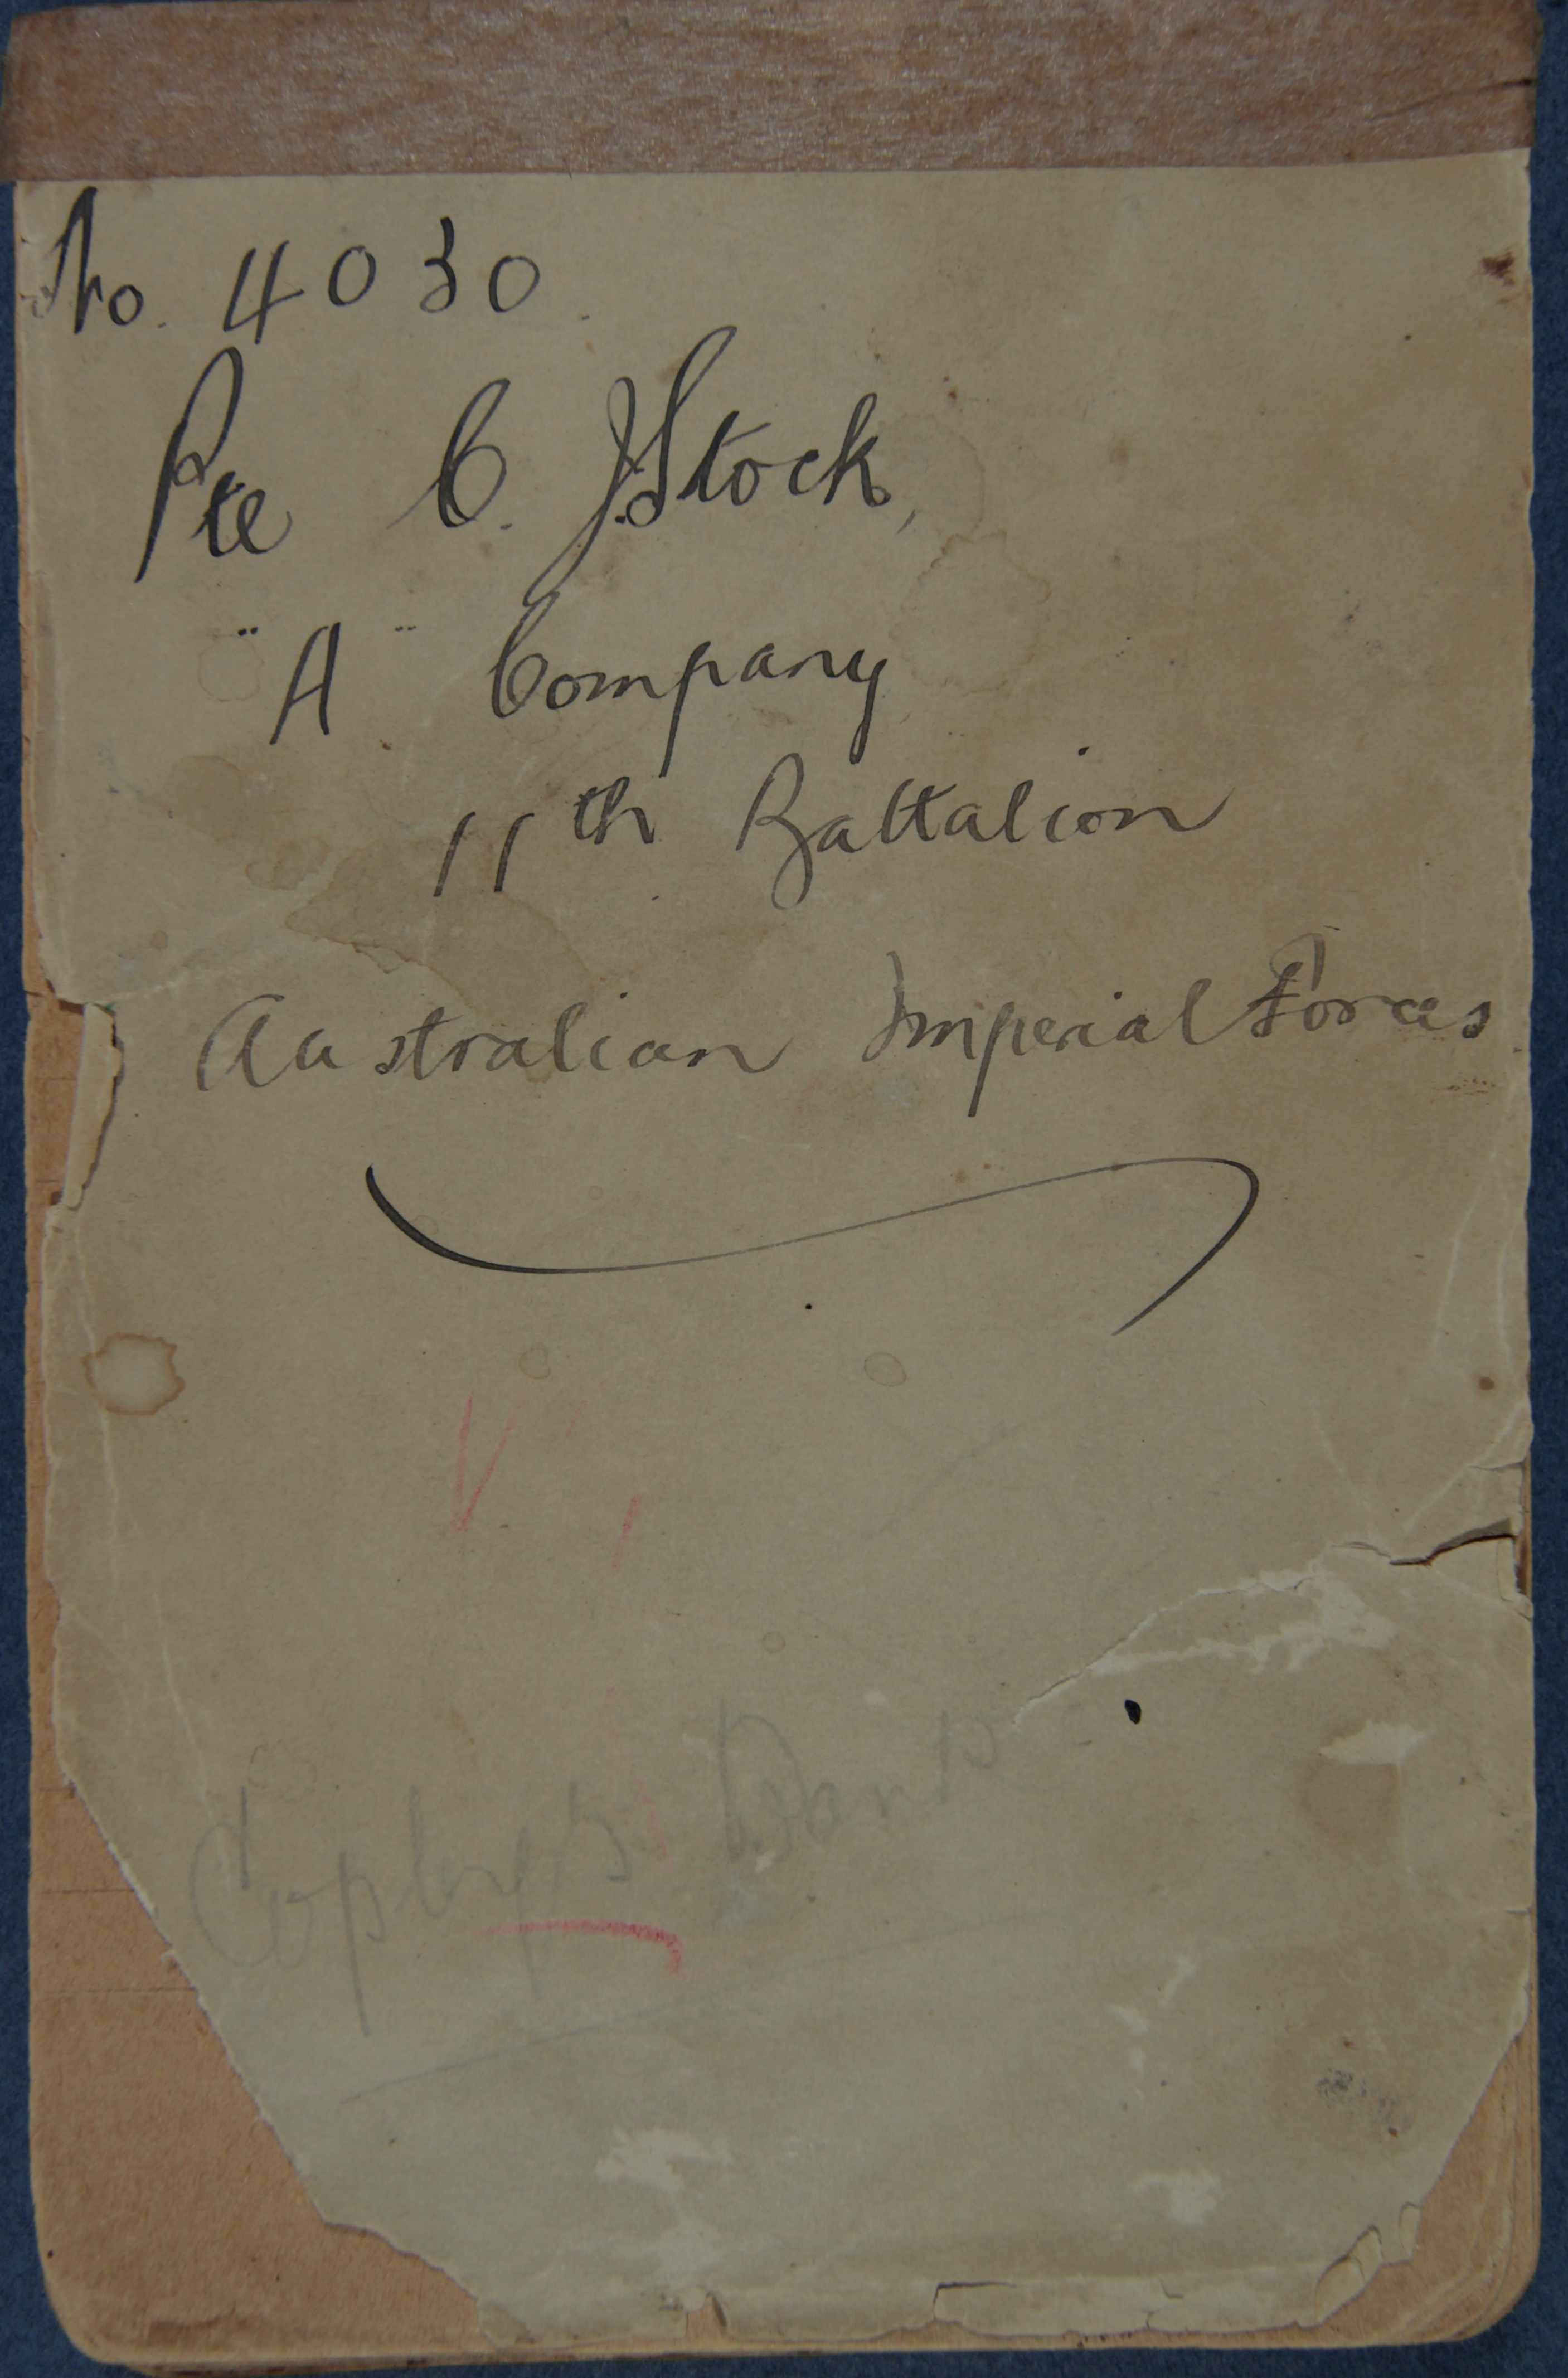 No. 4030.
Pte C. J. Stock,
"A" Company
11th Battalion
Australian Imperial Forces.